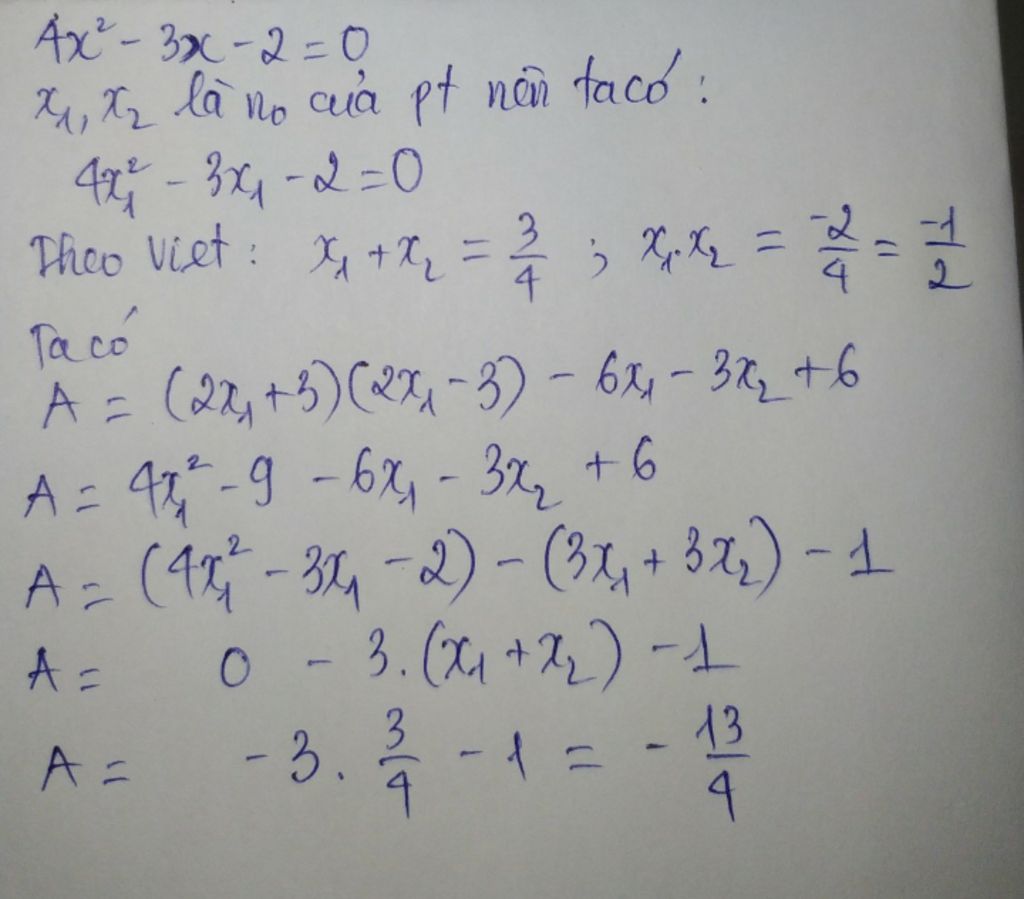 4x² - 3x - 2 = 0
x₁, x₂ là n₀ của pt nên ta có :
4x₁² - 3x₁ - 2 = 0
Theo Viet : x₁ + x₂ = 3/4 ; x₁.x₂ = -2/4 = -1/2
Ta có
A = (2x₁ + 3)(2x₁ - 3) - 6x₁ - 3x₂ + 6
A = 4x₁² - 9 - 6x₁ - 3x₂ + 6
A = (4x₁² - 3x₁ - 2) - (3x₁ + 3x₂) - 1
A = 0 - 3.(x₁ + x₂) - 1
A = - 3. 3/4 - 1 = - 13/4